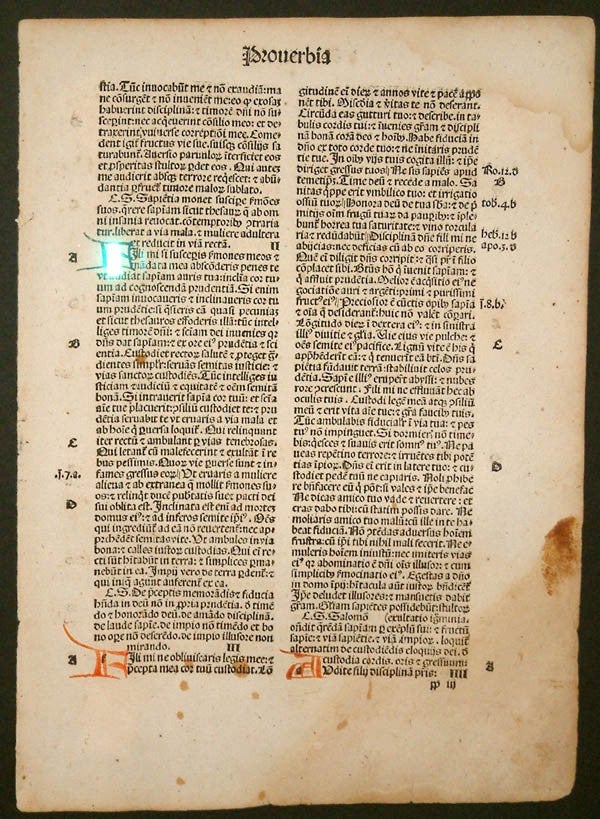 Prouerbia
stia. Tūc inuocabūt me & nō exaudiā: ma
ne cōsurgēt & nō inueniēt me: eo ꝙ exosā
habuerint disciplinā: & timorē dn̄i nō su
sceperint: nec acquieuerint cōsilio meo: et de
traxerint vniuerse correptiōi mee. Come
dent igit̄ fructus vie sue. suisq̄ cōsilijs sa
turabunt̄. Auersio paruulorꝝ īterficiet eos
et ꝓsperitas stultorꝝ ꝑdet eos. Qui autem
me audierit absq̄ terrore reqescet: & abū
dantia ꝑfruet̄ timore malorꝝ sublato.
C.S. Sapientia monet suscipe ſmones
suos. q̄rere sapiam sicut thesaurū
in insania reuocat. cōtemptorib̄ ꝯtraria
tur. liberat a via mala. & muliere adultera
et reducit in viā rectā. II
A
Fili mi si susceperis ſmones meos &
mādata mea abscōderis penes te
vt audiat sapiam auris tua: inclīa cor tu
um ad cognoscendā prudentiā. Si enim
sapiam inuocaueris & inclinaueris cor tu
um prudētie: si q̄sieris eā quasi pecuniā:
et sicut thesauros effoderis illā: tūc intel
liges timorē dn̄i: & sciam dei inuenies: qꝛ
B
dn̄s dat sapiam: & ex ore ei⁹ prudētia & sci
entia. Custodiet rectorꝝ salutē & ꝓteget ḡ
dientes simplr: seruās semitas iusticie: &
vias sanctorꝝ custodiēs. Tūc intelliges iu
sticiam & iudiciū & equitatē & oēm semitā
bonā. Si intrauerit sapia cor tuū: et sciā
aīe tue placuerit: ꝯsiliū custodiet te: & pru
dētia seruabit te vt eruaris a via mala et
ab hoīe q̄ ꝑuersa loquit̄. Qui relinquunt
iter rectū & ambulant ꝑ vias tenebrosas.
C
Qui letant̄ cū malefecerint & exultāt ī re
bus pessimis. Quorꝝ vie ꝑuerse sunt & in
fames gressus eorꝝ. Vt eruaris a muliere
J.7.a.
aliena & ab extranea q̄ mollit ſmones su
os: & relinqt ducē pubtatis sue: & pacti dei
D
sui oblita est. Inclinata est em̄ ad mortē
domus ei⁹: & ad inferos semite ip̄i⁹. Oēs
qui ingrediunt̄ ad eā nō reuertent̄: nec ap
p̄hēdēt semitas vite. Vt ambules in via
bona: & calles iustorꝝ custodias. Qui em̄ re
cti sūt hītabūt in terra: & simplices ꝑma
nebūt in ea. Impij vero de terra ꝑdent̄: &
qui iniq̄ agunt auferent̄ ex ea.
C.S. De ꝑceptis memoriā: & fiducia
hn̄da in deū nō in ꝓpria prudētia. ꝺ timē
do & honorādo deū. de amādo disciplinā.
de laude sapie. de impio nō timēdo et bo
no oꝑe nō deserēdo. de impio illusore non
mirando. III
A
Fili mi ne obliuiscaris legis mee: &
p̄cepta mea cor tuū custodiat. Lō
gitudinē em̄ dierꝝ & annos vite & pacē appo
nēt tibi. Mīa & v̄itas te nō deserant.
Circūda eas gutturi tuo: & describe in ta
bulis cordis tui: & īuenies gr̄am & discipli
nā bonā corā deo & hoībꝫ. Habe fiduciā in
dn̄o ex toto corde tuo: & ne īnitaris prudē
tie tue. In oībꝫ vijs tuis cogita illū: & ip̄e
diriget gressus tuos. Ne sis sapiēs apud
Ro.12.d
temetip̄m. Time deū & recede a malo. Sa
B
nitas q̄ppe erit vmbilico tuo: et irrigatio
ossiū tuorꝝ. Honora deū de tua sba: & de p̄
tob.4.b
mitijs oīm frugū tuarꝝ da pauꝑibꝫ: & īple
bunt̄ horrea tua saturitate: & vino torcula
ria & redūdabūt. Disciplinā dn̄i fili mi ne
heb.12.b
abijcias: nec deficias cū ab eo corriperis.
apo.3.d
Quē em̄ diligit dn̄s corripit: & q̄si pr̄ ī filio
cōplacet sibi. Btūs hō q̄ īuenit sapiam: &
q̄ affluit prudētia. Melior ē acq̄sitio ei⁹ ne
gociatiōe auri & argēti: primi & purissimi
fruct⁹ ei⁹. Preciosior ē cūctis opibꝫ sapia
J.8.b.
& oīa q̄ desiderant̄: huic nō valēt cōpari.
Lōgitudo dierꝝ ī dextera ei⁹: & in sinistra
illi⁹ diuitie & gl̄ia. Vie ei⁹ vie pulchre: &
C
oēs semite ei⁹ pacifice. Lignū vite ē his q̄
app̄hēderīt eā: & q̄ tenuerit eā bt̄us. Dn̄s sa
piētia fūdauit terrā: stabiliuit celos pru
dētia. Sapīe illi⁹ eruperūt abyssi: & nubes
rore ꝯcrescunt. Fili mi ne effluāt hec ab
oculis tuis. Custodi legē meā atq̄ ꝯsiliū
meū & erit vita aīe tue: & gr̄a faucibꝫ tuis.
Tūc ambulabis fiducialr̄ ī via tua: & pes
tu⁹ nō impinget. Si dormieris nō time
bis: q̄esces & suauis erit somn⁹ tu⁹. Ne pa
ueas repētino terrore: & irruētes tibi potē
tias īpiorꝝ. Dn̄s em̄ erit in latere tuo: & cu
D
stodiet pedē tuū ne capiaris. Noli ꝓhibe
re bn̄facere eū q̄ pōt: si vales & ip̄e benefac
Ne dicas amico tuo vade & reuertere: et
cras dabo tibi: cū statim possis dare. Ne
moliaris amico tuo malū: cū ille in te ha
beat fiduciā. Nō ꝯtēdas aduersus hoīem
frustra: cū ip̄e tibi nihil mali fecerit. Ne e
muleris hoīem iniustū: nec imiteris vias
ei⁹: qꝛ abominatio ē dn̄i oīs illusor: & cum
simplicibꝫ ſmocinatio ei⁹. Egestas a dn̄o
in domo īpij: hītacula aūt iustorꝝ bn̄dicēt̄.
Ip̄e deludet illusores: & mansuetis dabit
gr̄am. Gl̄iam sapiētes possidebūt: stultorꝝ
C.S. Salomō (exultatio ignīmia.
oñdit q̄rēdā sapiam ꝑ exēplū sui: & fructū
sapie: & via sapiētie. & viā impiorꝝ. loquit̄
alternatim de custodiēdis eloquijs dei. ꝺ
custodia cordis. oris & gressuum
A
Audite filij disciplinā pr̄is: IIII
pp iij